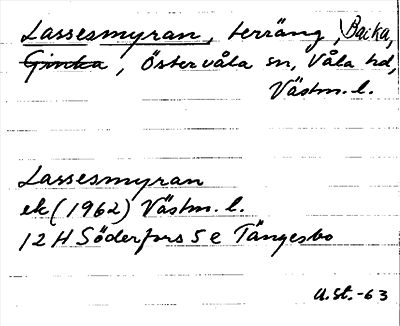 Lassesmyran, terräng, Baika,
Ginka, Östervåla sn, Våla hd,
Västm. l.
Lassesmyran
ek (1962) Västm. l.
12 H Söderfors 5 e Tängesbo
U.St.-63